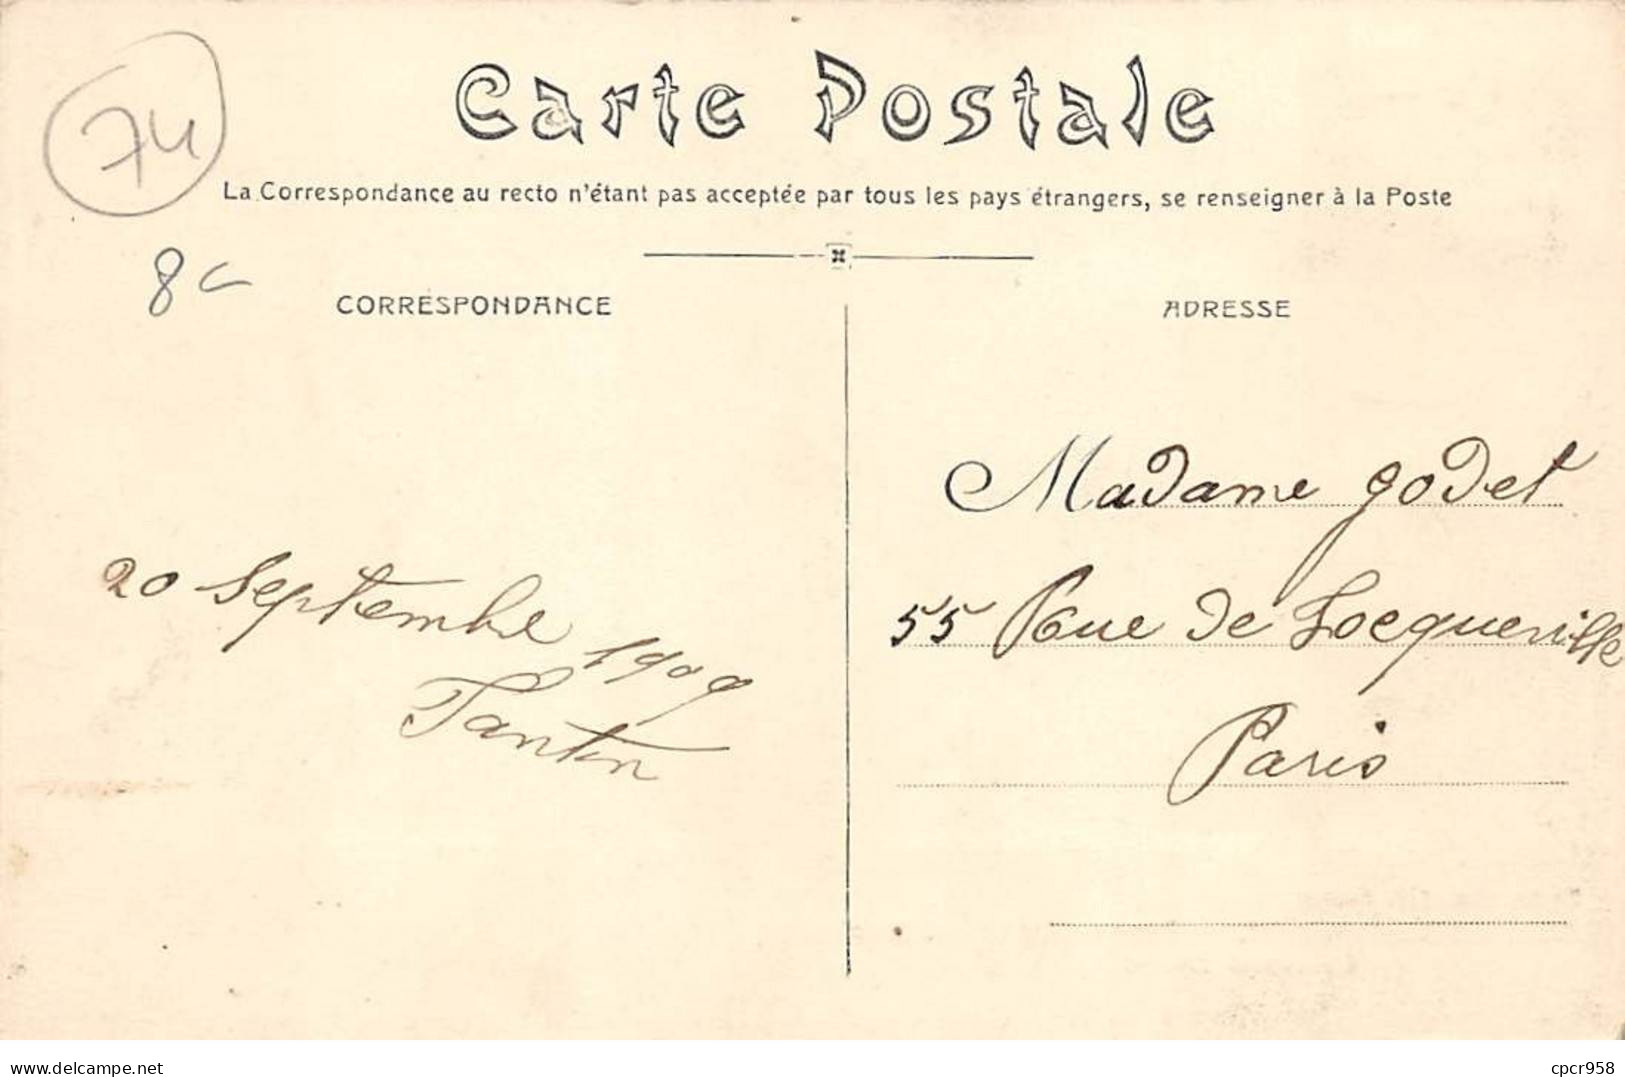 74
Carte Postale
La Correspondance au recto n'étant pas acceptée par tous les pays étrangers, se renseigner à la Poste
8
CORRESPONDANCE
ADRESSE
Madame Godet
55 Rue de Tocqueville
Paris
20 Septembre 1909
Tantin
www.delcampe.net
cpcr958